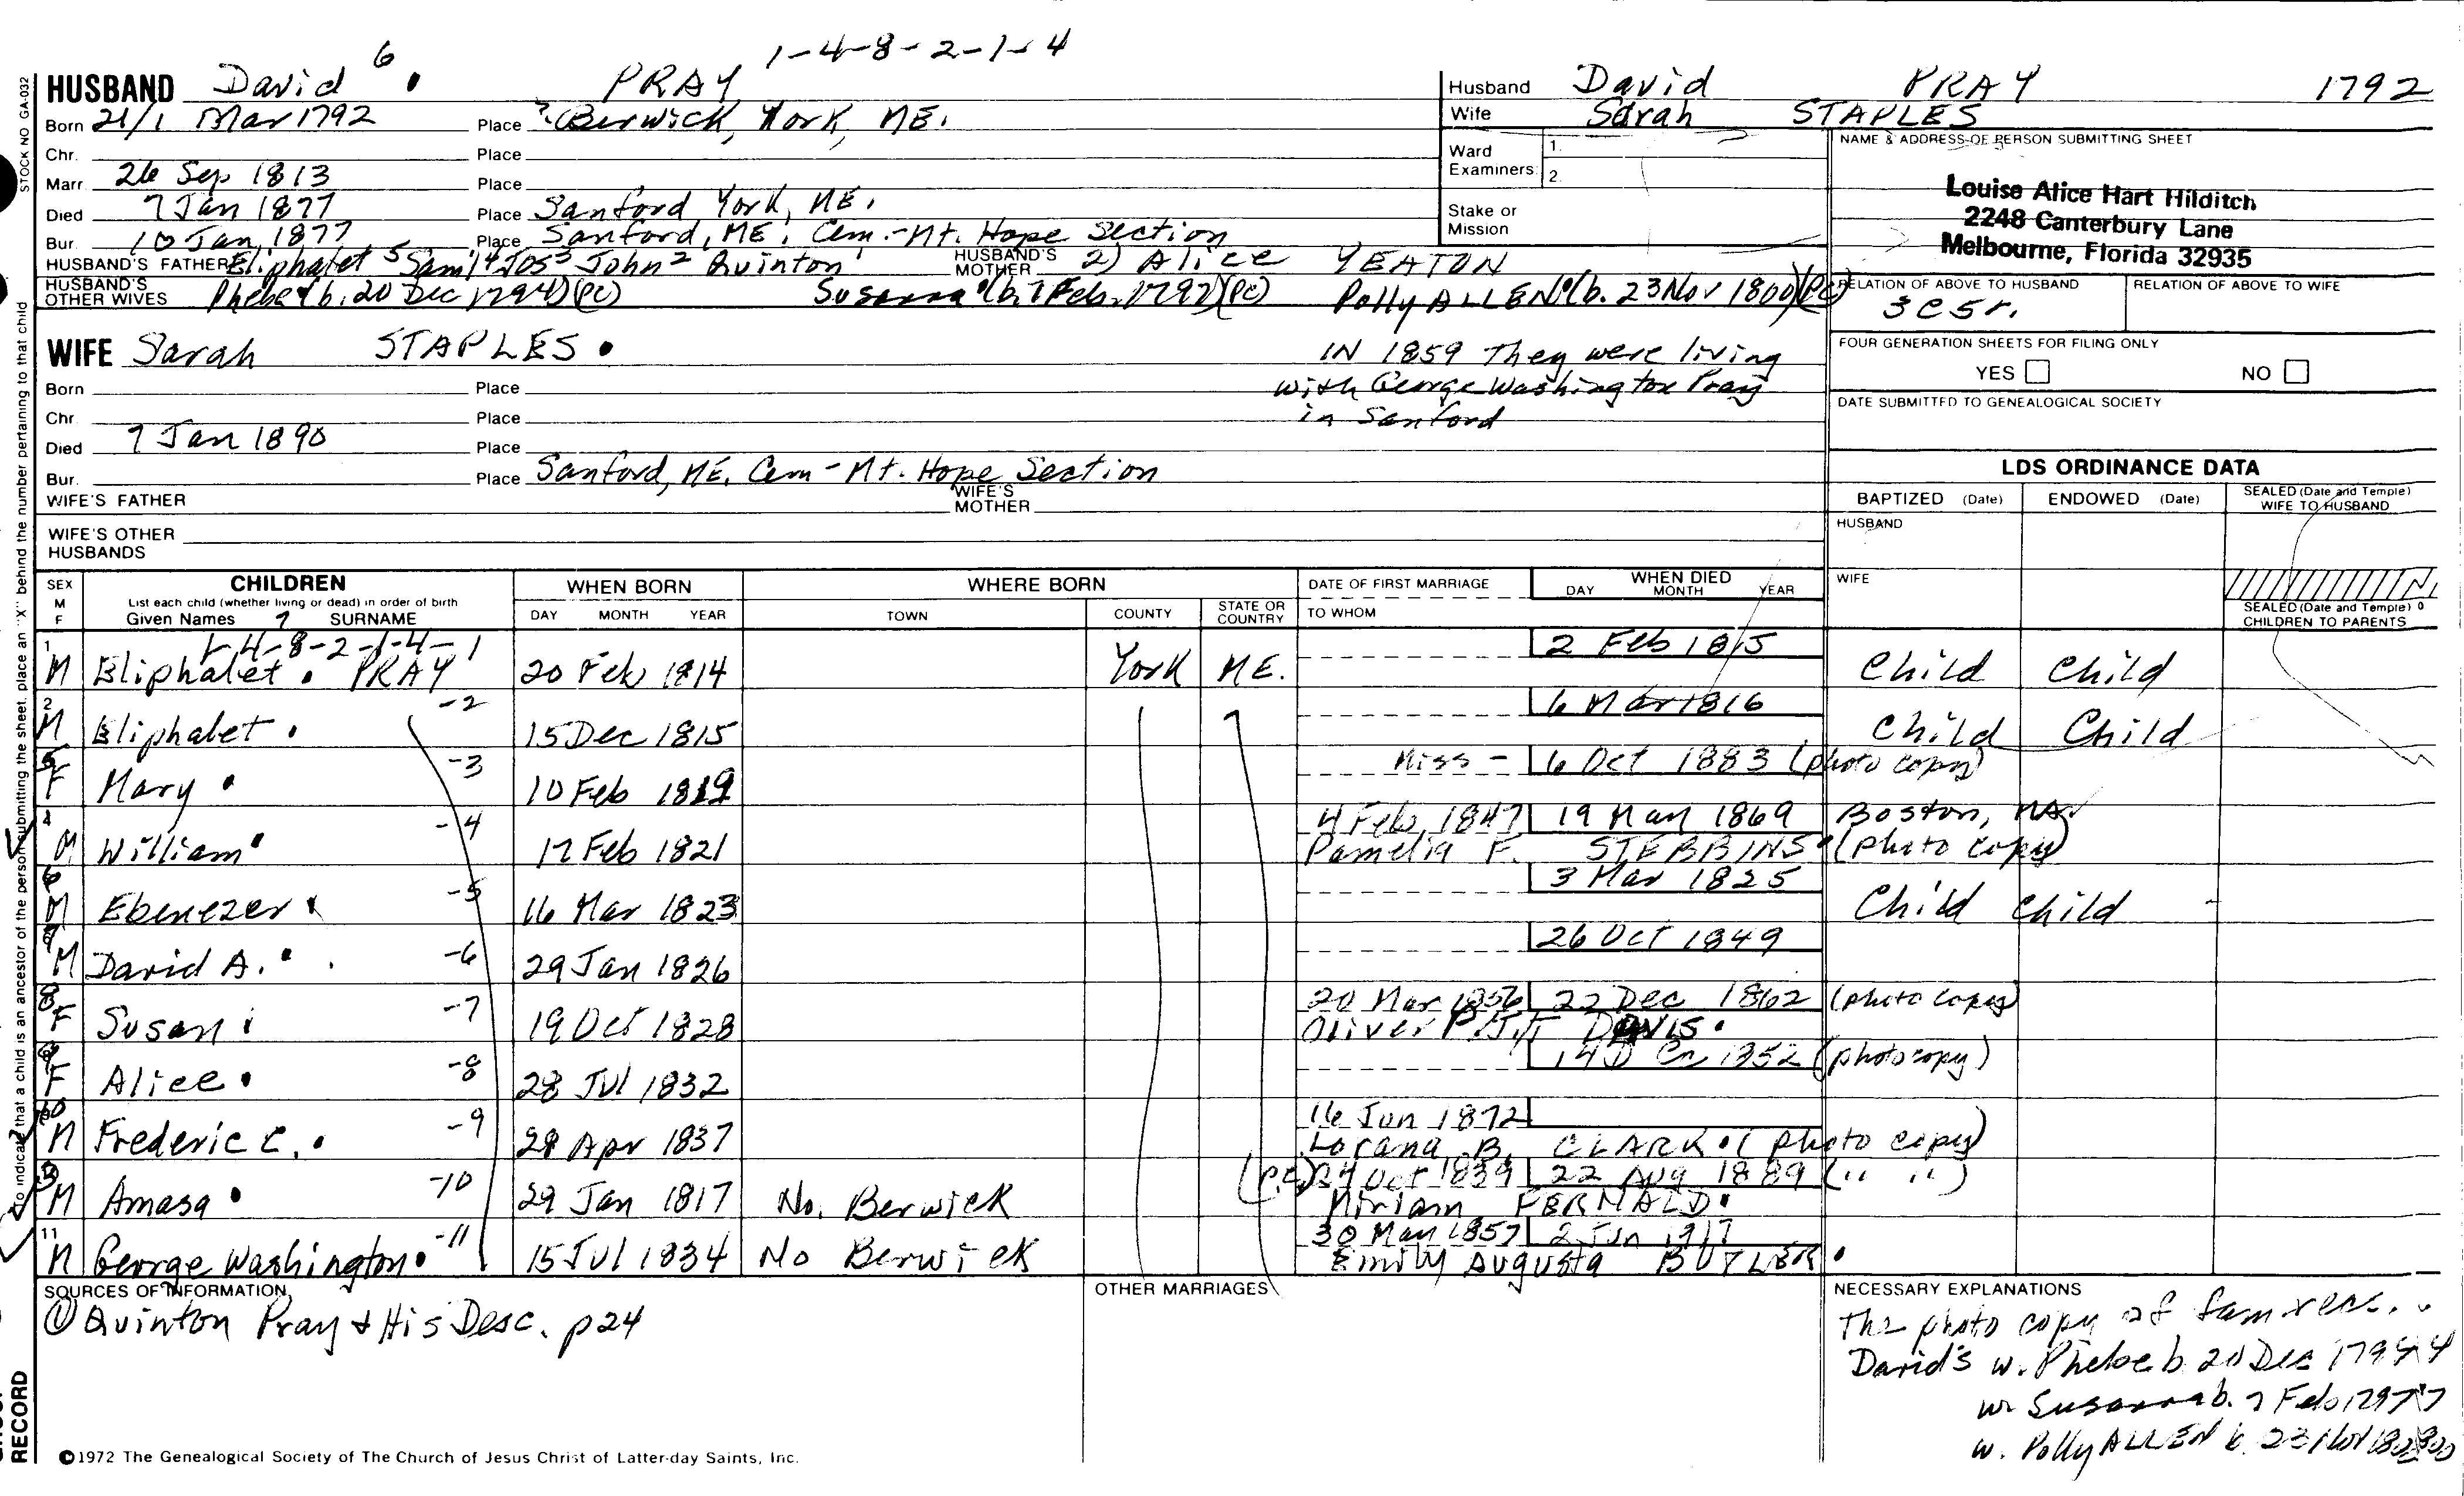 1-4-8-2-1-4
HUSBAND David 6 . PRAY
Born 21/1 Mar 1792 Place ? Berwick, York, ME.
Chr. Place
Marr. 26 Sep 1813 Place
Died 7 Jan 1877 Place Sanford York, ME.
Bur. 10 Jan, 1877 Place Sanford, ME, Cem.-Mt. Hope Section
HUSBAND'S FATHER Eliphalet 5 Sam'l 4 Jos 3 John 2 Quinton 1 HUSBAND'S MOTHER 2) Alice YEATON
HUSBAND'S OTHER WIVES Phebe (b. 20 Dec 1794)(PC) Susanna (b. 7 Feb. 1797)(PC) Polly ALLEN (b. 23 Nov 1800)(PC)
WIFE Sarah STAPLES .
IN 1859 They were living
with George Washington Pray
in Sanford
Born Place
Chr. Place
Died 7 Jan 1890 Place
Bur. Place Sanford, ME. Cem - Mt. Hope Section
WIFE'S FATHER WIFE'S MOTHER
WIFE'S OTHER HUSBANDS
Husband David PRAY 1792
Wife Sarah STAPLES
Ward Examiners: 1. 2.
Stake or Mission
NAME & ADDRESS OF PERSON SUBMITTING SHEET
Louise Alice Hart Hilditch
2248 Canterbury Lane
Melbourne, Florida 32935
RELATION OF ABOVE TO HUSBAND RELATION OF ABOVE TO WIFE
3C5r.
FOUR GENERATION SHEETS FOR FILING ONLY
YES NO
DATE SUBMITTED TO GENEALOGICAL SOCIETY
LDS ORDINANCE DATA
BAPTIZED (Date) ENDOWED (Date) SEALED (Date and Temple) WIFE TO HUSBAND
HUSBAND
WIFE
SEALED (Date and Temple) CHILDREN TO PARENTS
SEX M F CHILDREN WHEN BORN WHERE BORN DATE OF FIRST MARRIAGE WHEN DIED
List each child (whether living or dead) in order of birth
Given Names 7 SURNAME DAY MONTH YEAR TOWN COUNTY STATE OR COUNTRY TO WHOM DAY MONTH YEAR
1-4-8-2-1-4-1
1 M Eliphalet . PRAY 20 Feb 1814 York ME. 2 Feb 1815 Child Child
2 M Eliphalet . -2 15 Dec 1815 6 Mar 1816 Child Child
F Mary . -3 10 Feb 1819 Miss - 6 Oct 1883 (photo copy)
4 M William . -4 17 Feb 1821 4 Feb, 1847 19 May 1869 Boston, MA.
Pamelia F. STEBBINS . (photo copy)
6 M Ebenezer -5 16 Mar 1823 3 Mar 1825 Child Child
M David A. . -6 29 Jan 1826 26 Oct 1849
8 F Susan -7 19 Oct 1828 20 Mar 1856 22 Dec 1862 (photo copy)
Oliver DAVIS .
9 F Alice . -8 28 Jul 1832 1852 (photocopy)
10 M Frederic C. . -9 28 Apr 1837 16 Jun 1872
Lorana B. CLARK . (photo copy)
3 M Amasa . -10 29 Jan 1817 No. Berwick (P.C.) 24 Oct 1839 22 Aug 1889 (" ")
Miriam FERNALD .
11 M George Washington . -11 15 Jul 1834 No Berwick 30 May 1857 2 Jun 1917
Emily Augusta BUTLER .
SOURCES OF INFORMATION OTHER MARRIAGES NECESSARY EXPLANATIONS
① Quinton Pray & His Desc. p24
The photo copy of fam recs.
David's w. Phebe b 20 Dec 1794
w. Susanna b. 7 Feb 1797
w. Polly ALLEN b. 23 Nov 1800
©1972 The Genealogical Society of The Church of Jesus Christ of Latter-day Saints, Inc.
STOCK NO GA-032
To indicate that a child is an ancestor of the person submitting the sheet, place an "X" behind the number pertaining to that child
RECORD